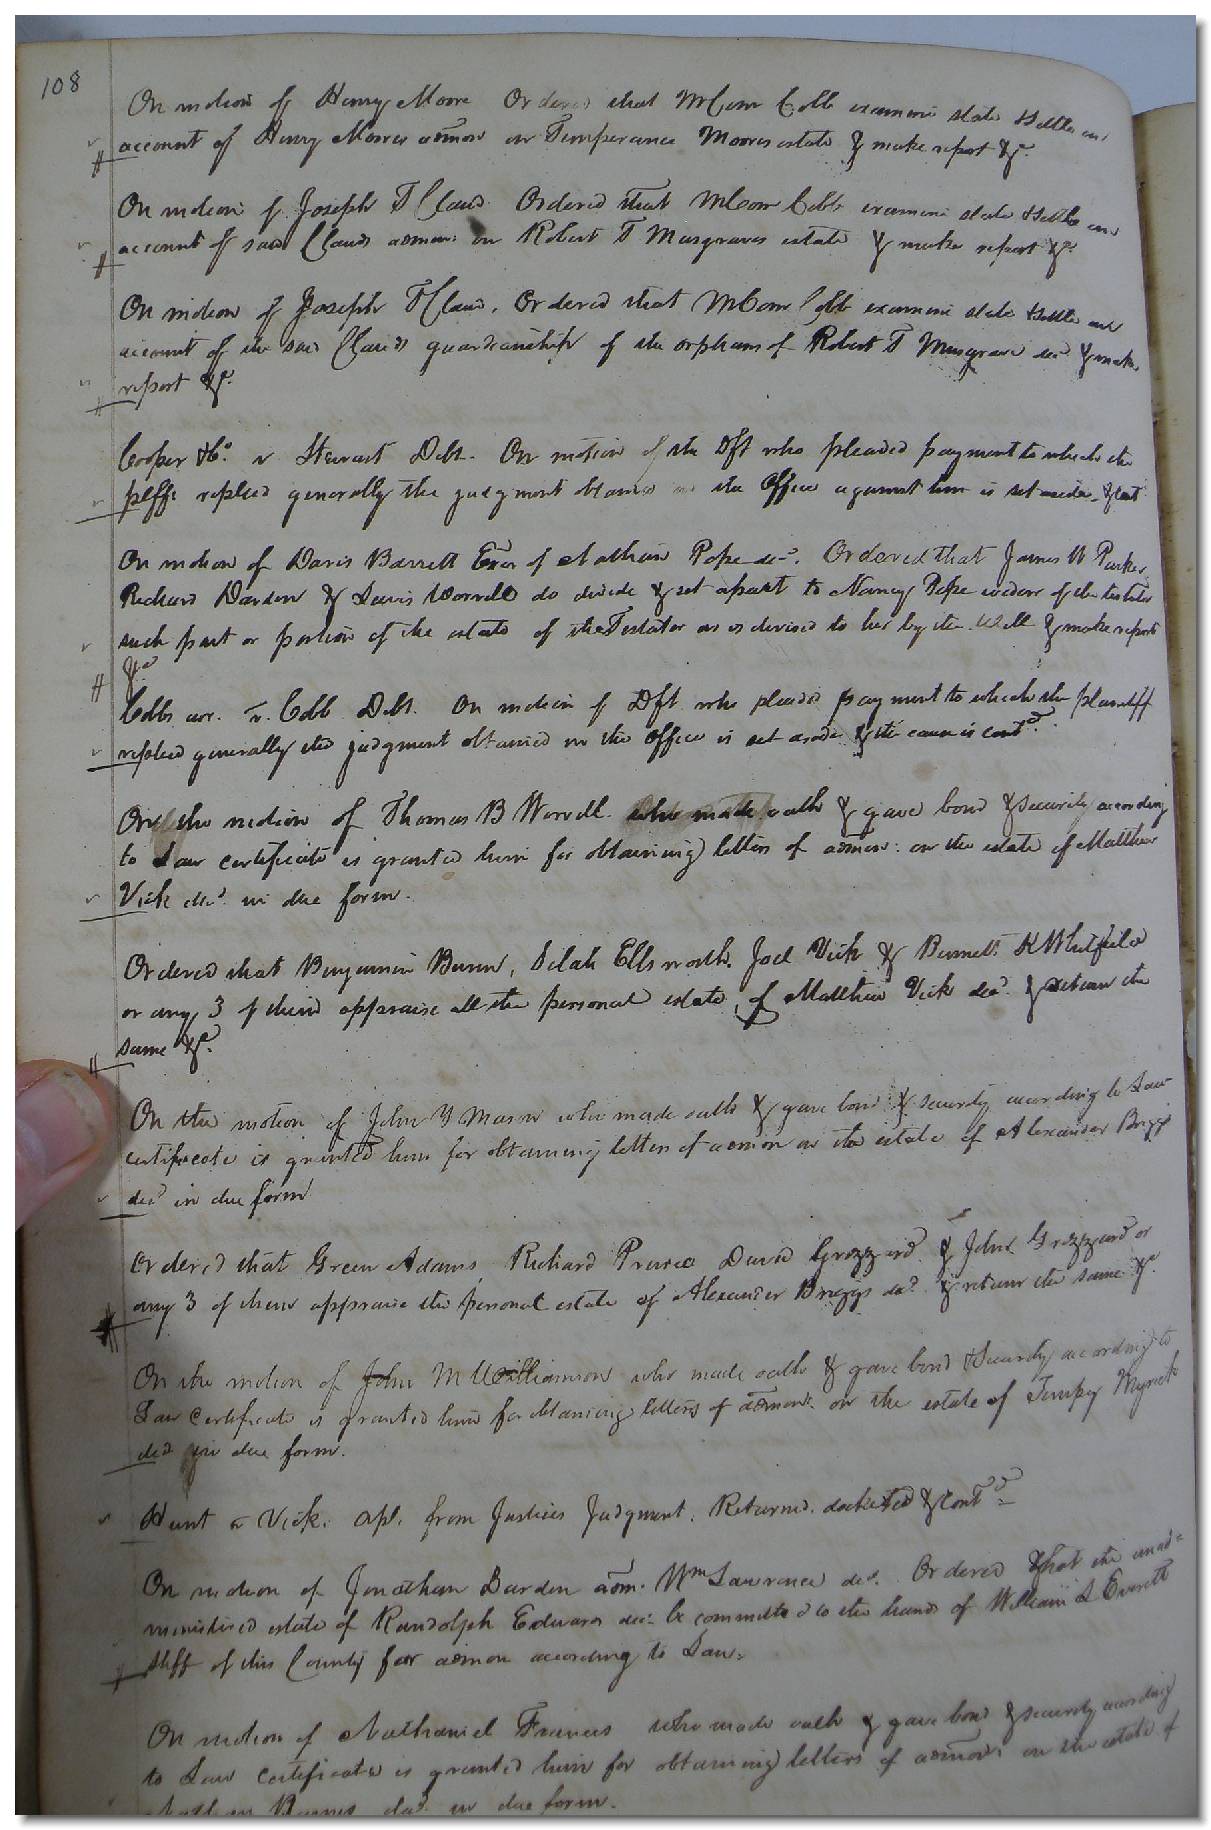 108
On motion of Henry Moore Ordered that MCom Cobb examine state & settle an
account of Henry Moores admon on Temperance Moores estate & make report &c.
On motion of Joseph T Claud Ordered that MCom Cobb examine state & settle an
account of said Clauds admon: on Robert T Musgraves estate & make report &c.
On motion of Joseph T Claud, Ordered that MCom Cobb examine state & settle an
account of the said Clauds guardianship of the orphans of Robert T Musgrave decd & make
report &c.
Cooper & Co. v Stewart Debt. On motion of the Dft who pleaded payment to which the
plffs replied generally the judgment obtained in the Office against him is set aside & cont
On motion of Davis Barrett Exor of Nathan Pope decd. Ordered that James W Parker
Richard Darden & Lewis Worrell do divide & set apart to Nancy Pope widow of the testator
such part or portion of the estate of the Testator as is devised to her by the Will & make report
&c
Cobbs v. Cobb Debt. On motion of Dft who pleaded payment to which the plaintiff
replied generally the judgment obtained in the office is set aside & the cause is contd.
On the motion of Thomas B Worrell who made oath & gave bond & security according
to Law certificate is granted him for obtaining letters of admon: on the estate of Matthew
Vick decd. in due form.
Ordered that Benjamin Bunn, Selah Ellsworth, Joel Vick & Bennett K Whitfield
or any 3 of them appraise all the personal estate of Matthew Vick decd. & return the
same &c.
On the motion of John Y Mason who made oath & gave bond & security according to Law
certificate is granted him for obtaining letters of admon on the estate of Alexander Briggs
decd in due form
Ordered that Green Adams, Richard Prince David Grizzard & John Grizzard or
any 3 of them appraise the personal estate of Alexander Briggs decd. & return the same &c.
On the motion of John M Williamson who made oath & gave bond & Security according to
Law Certificate is granted him for obtaining letters of admon: on the estate of Tempy Myrick
decd in due form.
Hunt v Vick. apl. from Justices Judgment. Returned docketed & contd
On motion of Jonathan Darden adm. Wm Lawrence decd. Ordered that the unad=
ministered estate of Randolph Edwards decd be committed to the hands of William L Everett
Shff of this County for admon according to Law.
On motion of Nathaniel Francis who made oath & gave bond & security according
to Law Certificate is granted him for obtaining letters of admon: on the estate of
Nathan Barnes decd. in due form.